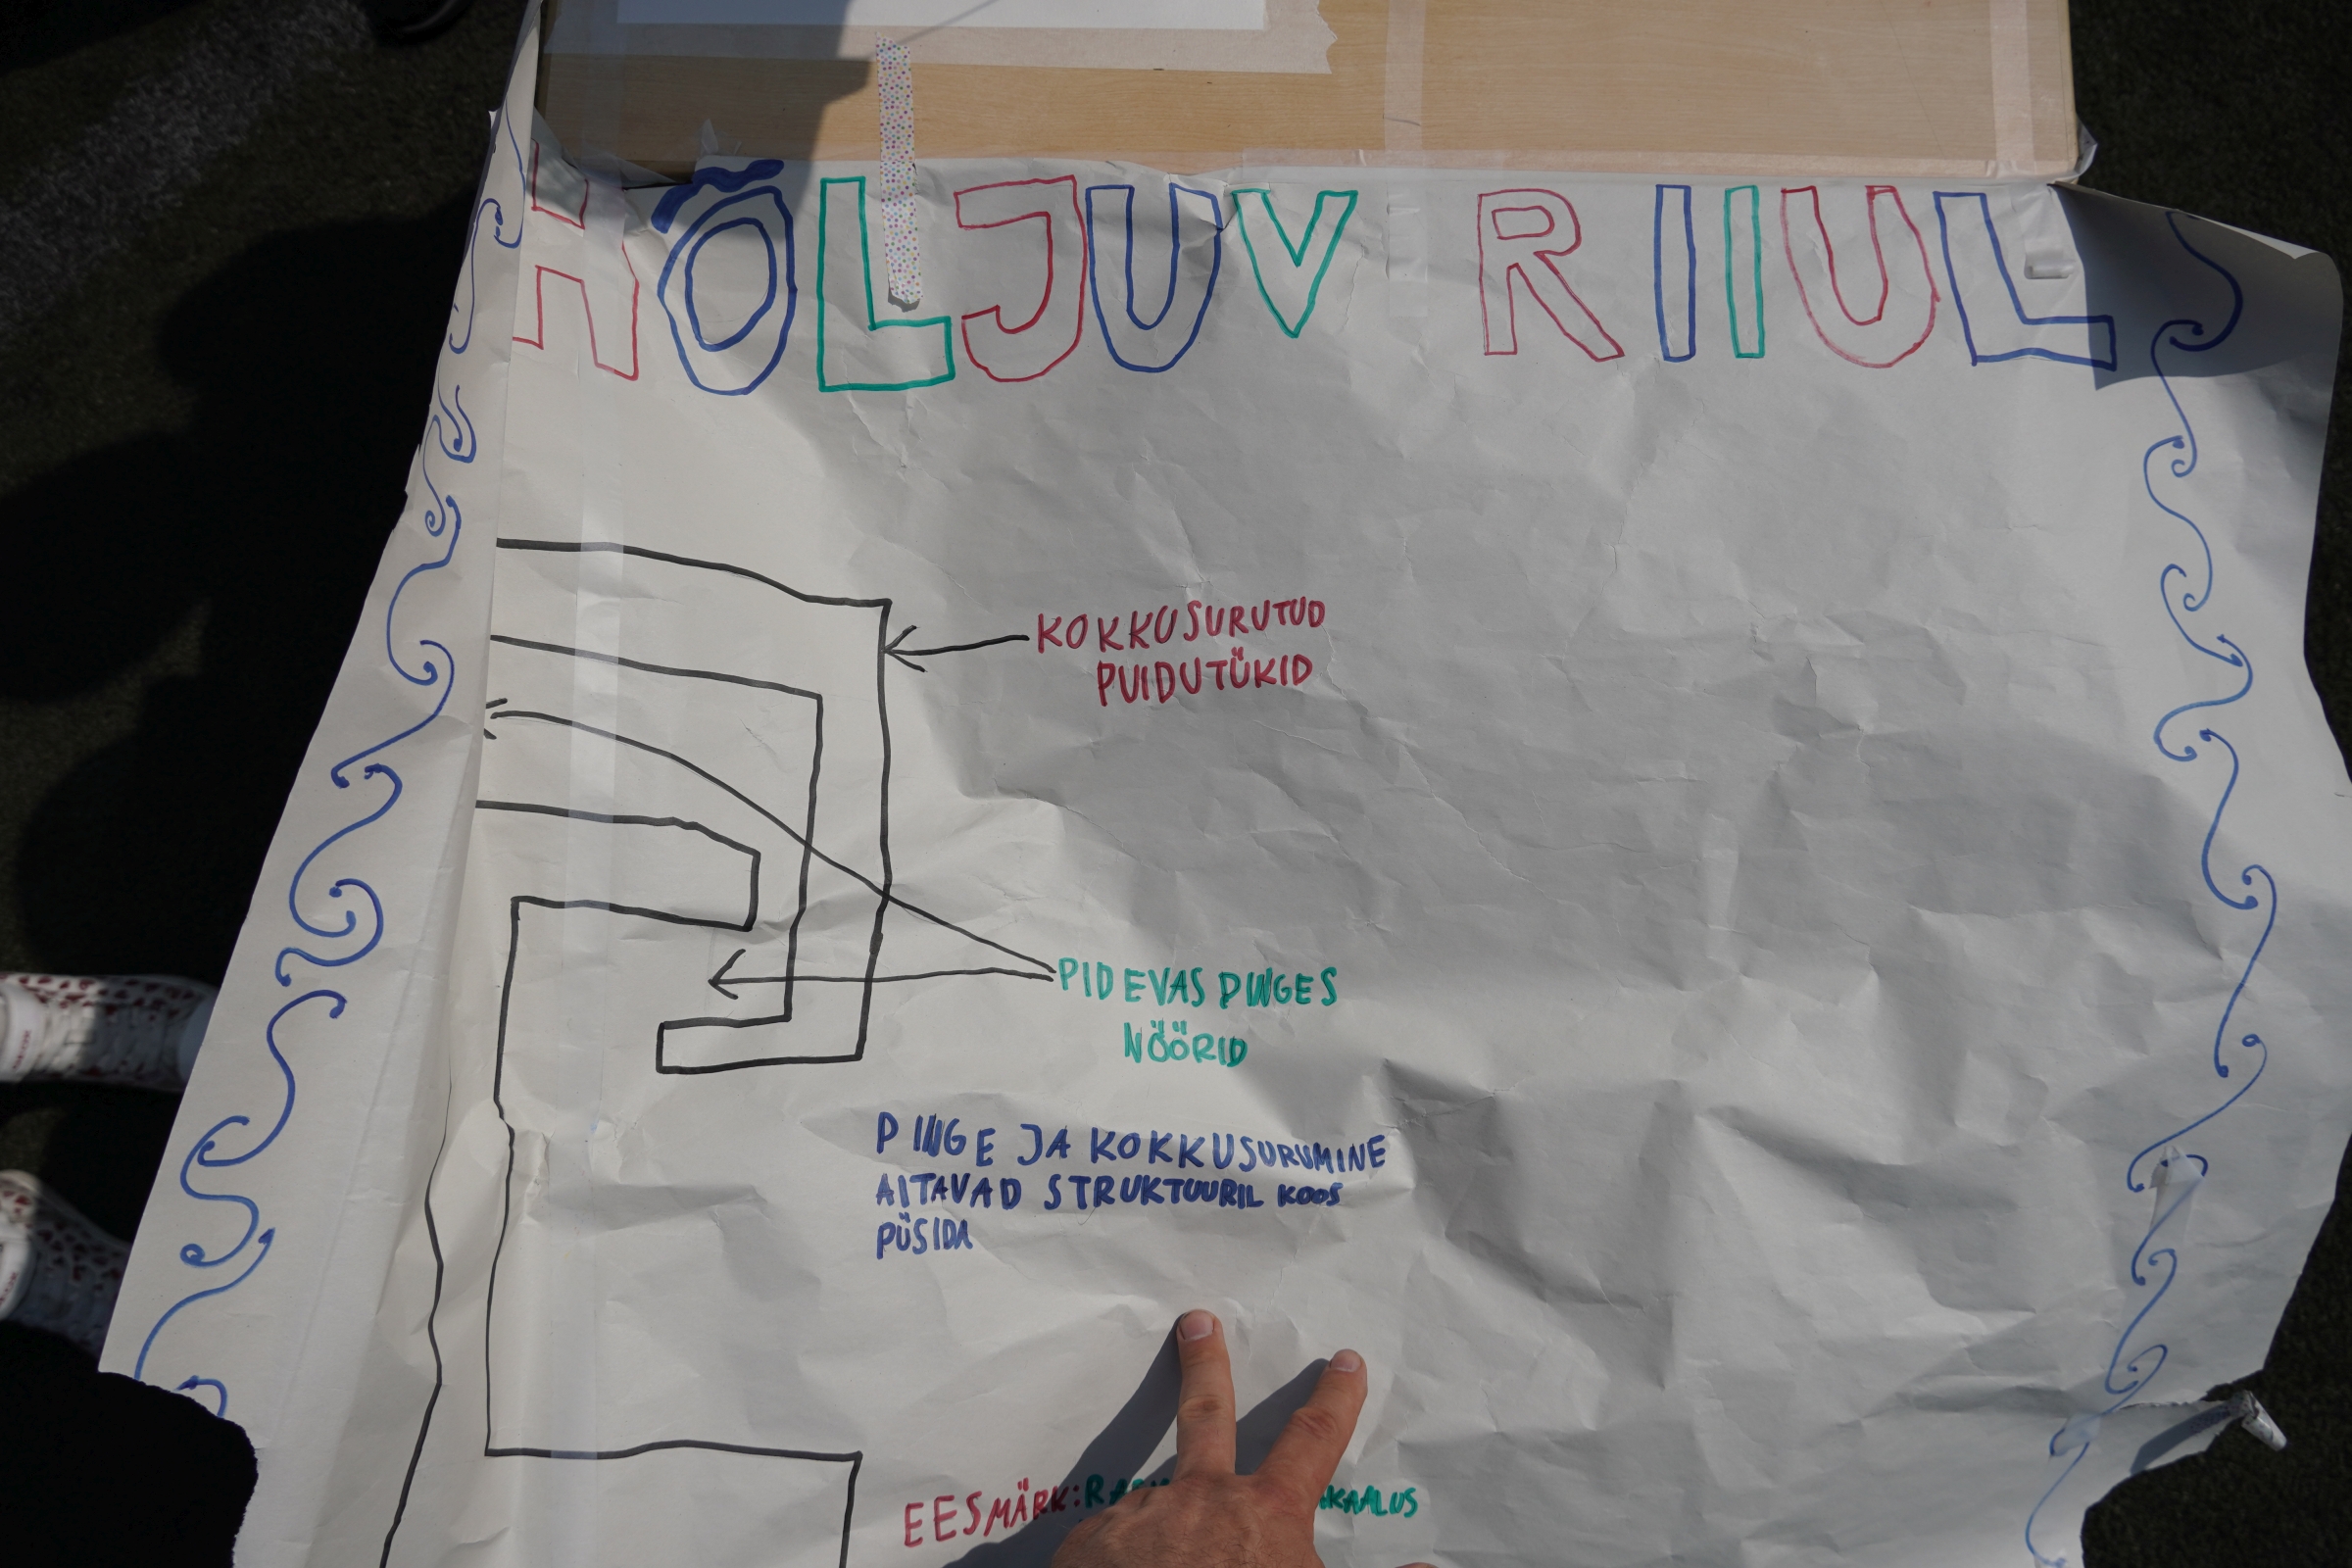 HÕLJUV RIIUL
KOKKUSURUTUD
PUIDUTÜKID
PIDEVAS PINGES
NÖÖRID
PINGE JA KOKKUSURUMINE
AITAVAD STRUKTUURIL KOOS
PÜSIDA
EESMÄRK: